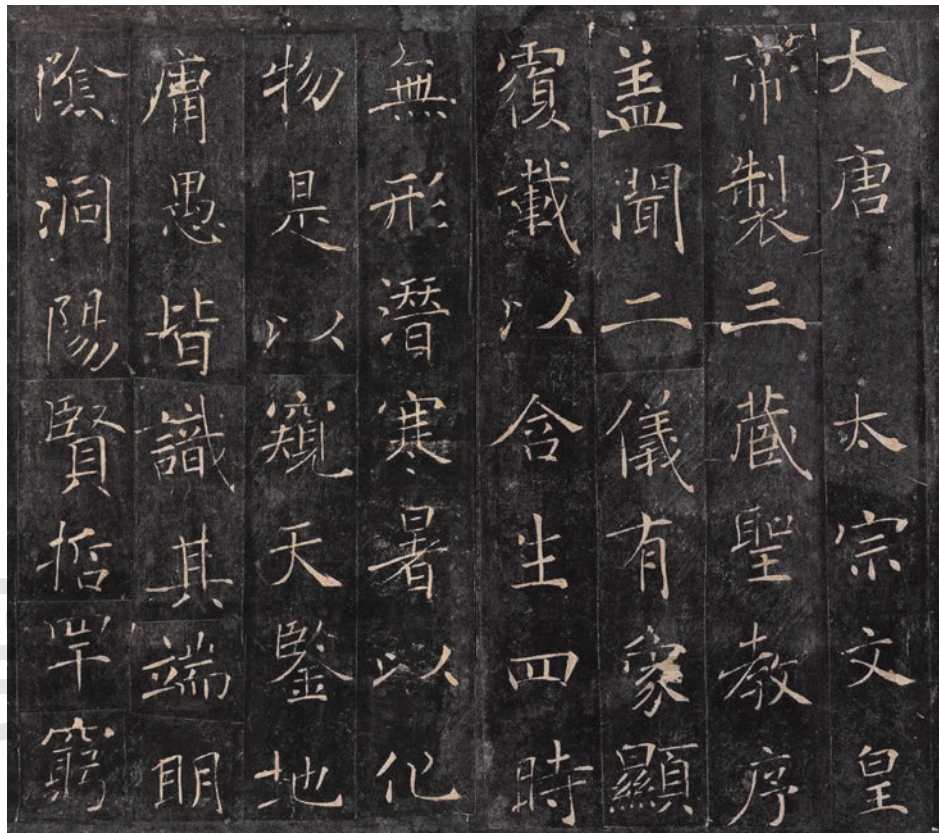 大唐太宗文皇
帝製三蔵聖教序
盖聞二儀有象顯
覆載以含生四時
無形潛寒暑以化
物是以窺天鑒地
庸愚皆識其端明
陰洞陽賢哲罕窮